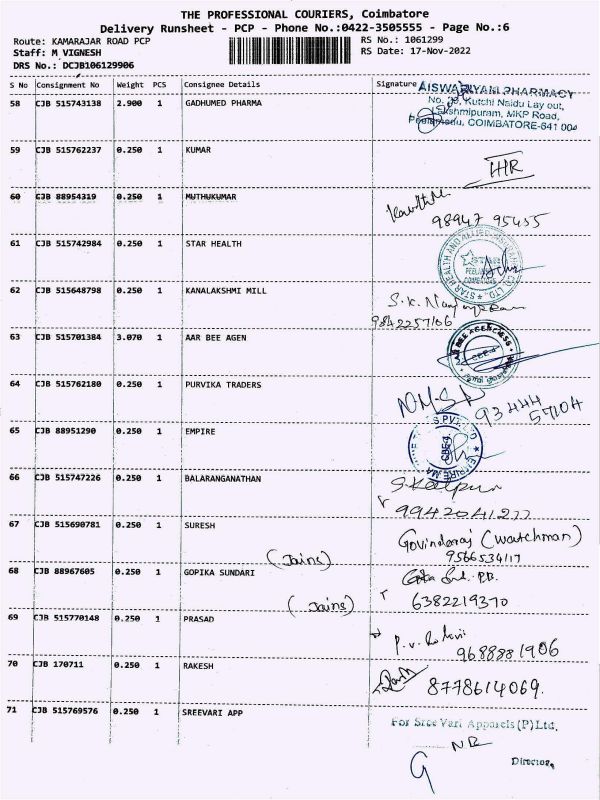 THE PROFESSIONAL COURIERS, Coimbatore
Delivery Runsheet - PCP - Phone No.:0422-3505555 - Page No.:6
Route: KAMARAJAR ROAD PCP
RS No. : 1061299
Staff: M VIGNESH
RS Date: 17-Nov-2022
DRS No.: DCJB106129906
S No Consignment No Weight PCS Consignee Details Signature
58 CJB 515743138 2.900 1 GADHUMED PHARMA
AISWARIYAM PHARMACY
Kutchi Naidu Lay out,
Lakshmipuram, MKP Road,
COIMBATORE-641 004
59 CJB 515762237 0.250 1 KUMAR
60 CJB 88954319 0.250 1 MUTHUKUMAR
98947 95455
61 CJB 515742984 0.250 1 STAR HEALTH
STAR HEALTH AND ALLIED
62 CJB 515648798 0.250 1 KANALAKSHMI MILL
S.K.
9842257106
63 CJB 515701384 3.070 1 AAR BEE AGEN
64 CJB 515762180 0.250 1 PURVIKA TRADERS
93444
57104
65 CJB 88951290 0.250 1 EMPIRE
66 CJB 515747226 0.250 1 BALARANGANATHAN
9942041277
67 CJB 515690781 0.250 1 SURESH
Govindaraj (Watchman)
9566534117
(Jains)
68 CJB 88967605 0.250 1 GOPIKA SUNDARI
6382219370
(Jains)
69 CJB 515770148 0.250 1 PRASAD
P.V.
9688881906
70 CJB 170711 0.250 1 RAKESH
8778614069.
71 CJB 515769576 0.250 1 SREEVARI APP
For Sree Vari Apparels (P) Ltd.
Director